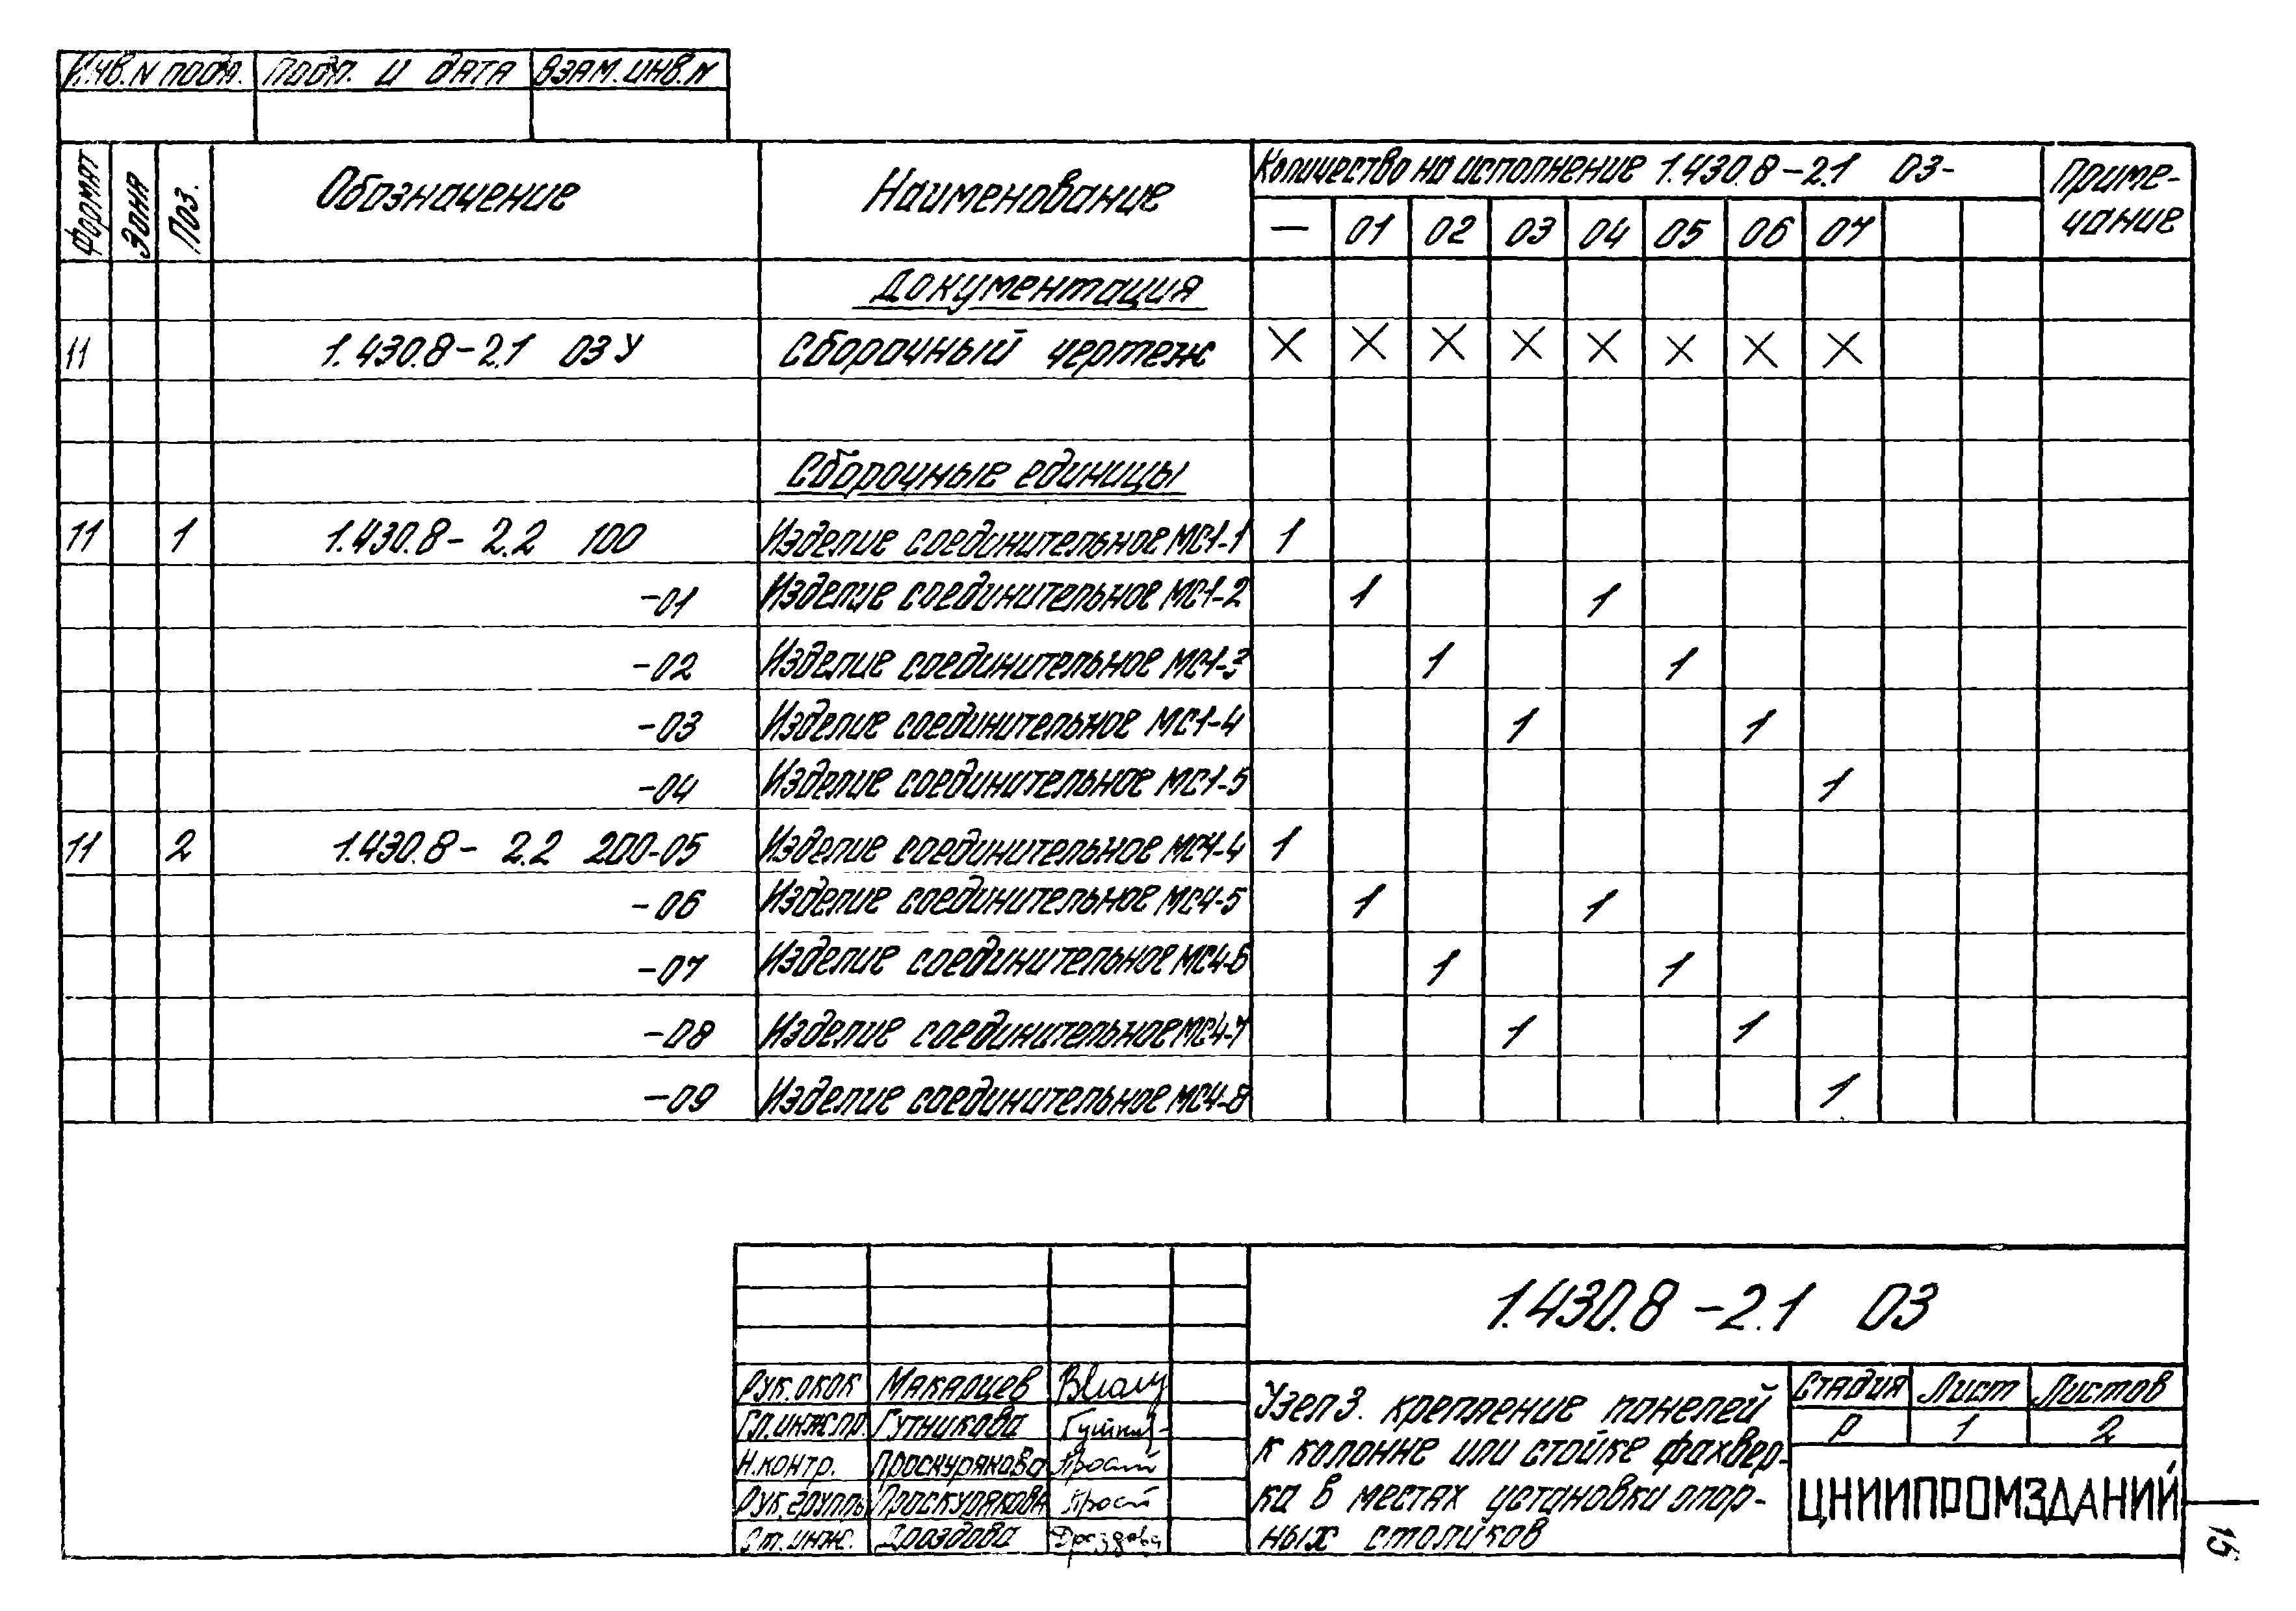 Инв.N подл. Подп. и дата Взам.инв.N
Формат Зона Поз. Обозначение Наименование Количество на исполнение 1.430.8-2.1 03- Приме-
чание
— 01 02 03 04 05 06 07
Документация
11 1.430.8-2.1 03У Сборочный чертеж X X X X X X X X
Сборочные единицы
11 1 1.430.8- 2.2 100 Изделие соединительное МС1-1 1
-01 Изделие соединительное МС1-2 1 1
-02 Изделие соединительное МС1-3 1 1
-03 Изделие соединительное МС1-4 1 1
-04 Изделие соединительное МС1-5 1
11 2 1.430.8- 2.2 200-05 Изделие соединительное МС4-4 1
-06 Изделие соединительное МС4-5 1 1
-07 Изделие соединительное МС4-6 1 1
-08 Изделие соединительное МС4-7 1 1
-09 Изделие соединительное МС4-8 1
1.430.8-2.1 03
Рук.окок Макарцев
Гл.инж.пр. Гутникова
Н.контр. Проскурякова
Рук.группы Проскурякова
Ст.инж. Дроздова Дроздова
Узел 3. крепление панелей
к колонне или стойке фахвер-
ка в местах установки опор-
ных столиков
Стадия Лист Листов
Р 1 2
ЦНИИПРОМЗДАНИЙ
15